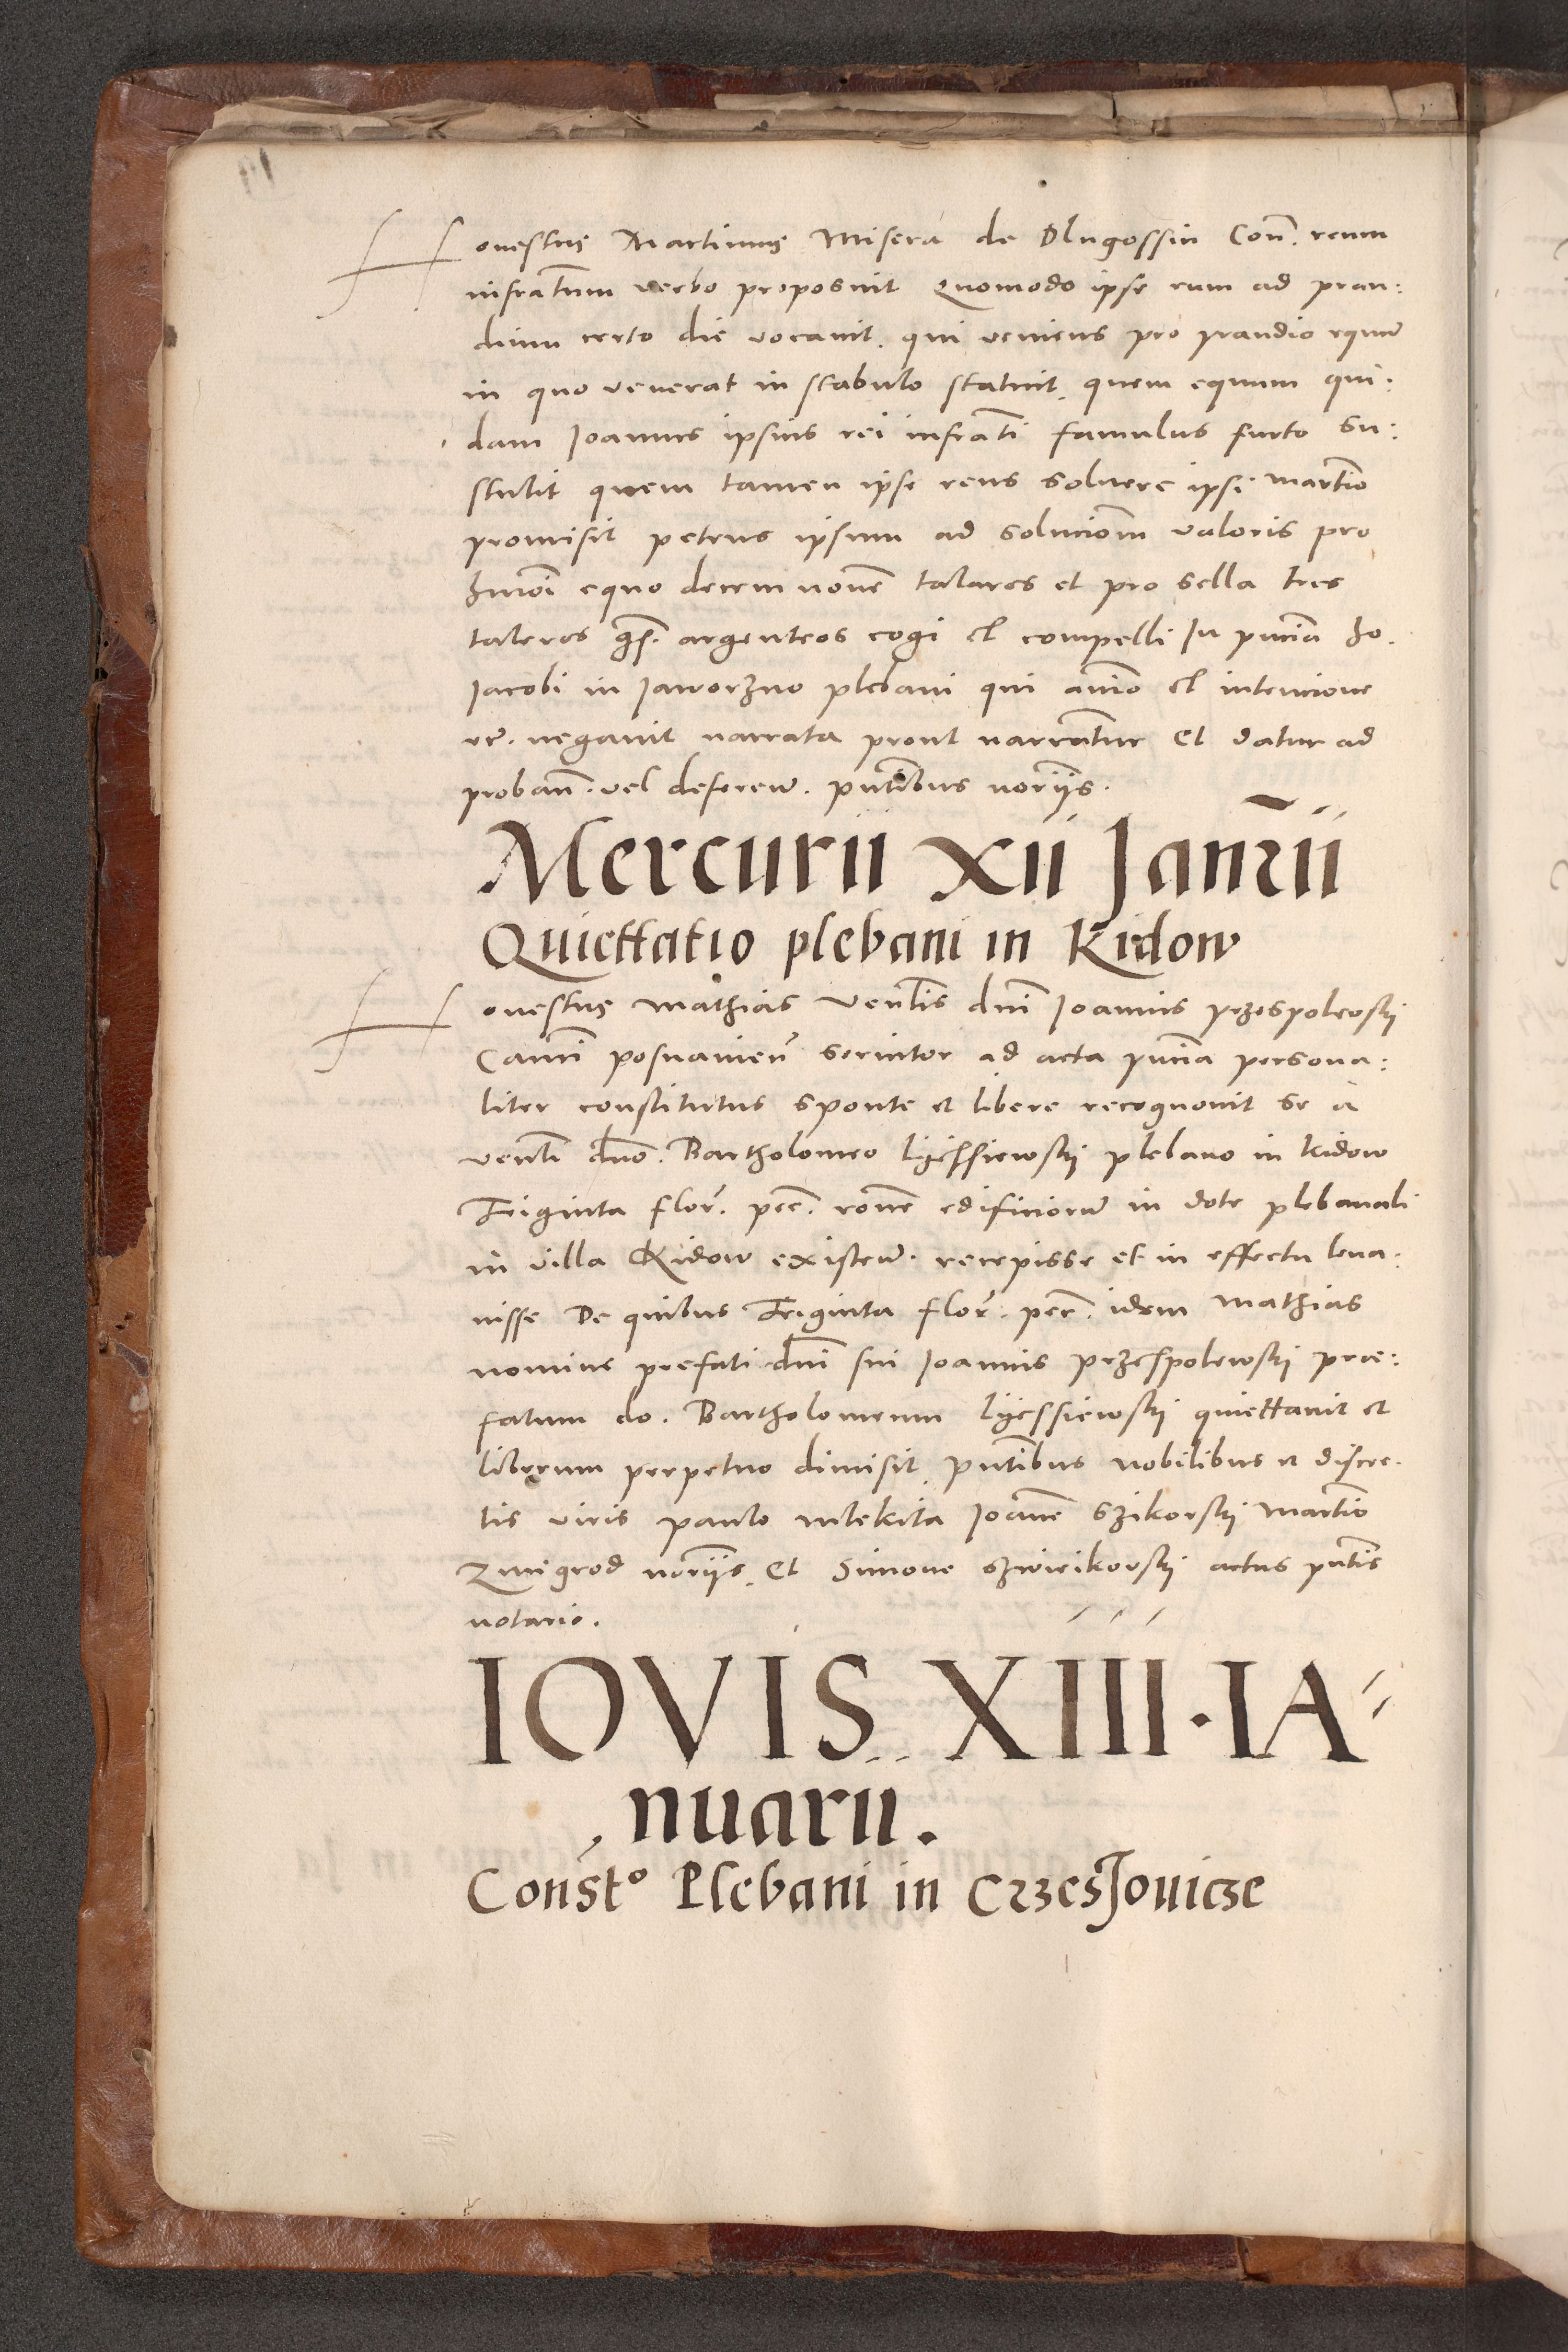 Honestus Martinus Misera de Dlugossin Con̄. reum
infrat̄um verbo proposuit Quomodo ipse eum ad pran:
dium certo die vocauit. qui veniens pro prandio equū
in quo venerat in stabulo statuit. quem equum qui:
dam Joannes ipsius rei infrat̄i famulus furto su:
stulit quem tamen ipse reus soluere ipsi Mart̄io
promisit petens ipsum ad soluciom̄ valoris pro
hm̄oi equo decem nouē talaros et pro sella tres
taleros gr̄s. argenteos cogi et compelli In pn̄cia ho.
Jacobi in Jaworzno plebani qui animo et intencione
re. negauit narrata prout narrant̄ur Et datur ad
proban̄. vel deferen̄. pn̄tibus nor̄iis.
Mercurii XII Jan̄rii
Quiettatio plebani in Kidow
Honestus Mathias Ven̄lis dn̄i Joannis przespolewskij
Can̄ci posnanien̄ seruitor ad acta pn̄cia persona:
liter constitutus sponte et libere recognouit se à
ven̄li dn̄o. Bartholomeo lijchsiewskij plebano in Kidow
Triginta flor̄. pec̄. rōne edificiorū in dote plebanali
in villa Kidow existen̄. recepisse et in effectu leua.
uisse De quibus Triginta flor̄. pec̄. idem Mathias
nomine prefati dn̄i sui Joannis przespolewskij prae:
fatum do. Bartholomeum lijessiewskij quiettauit et
liberum perpetuo dimisit. pn̄tibus Nobilibus et discre.
tis viris paulo mlekita Joan̄e Szikorskij Mart̄io
Zmigrod nor̄iis. Et Simone szwirikowskij actus pn̄tis
notario.
IOVIS XIII · IA
nuarii.
Const̄º Plebani in Crzessouicze